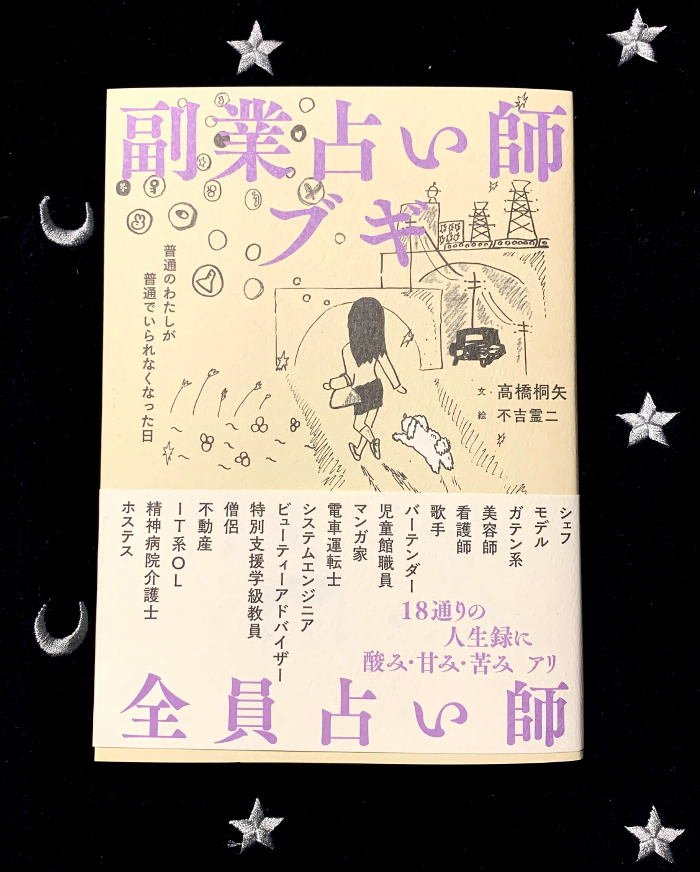 副業占い師
ブギ
普通のわたしが
普通でいられなくなった日
文・高橋桐矢
絵・不吉霊二
シェフ
モデル
ガテン系
美容師
看護師
歌手
バーテンダー
児童館職員
マンガ家
電車運転士
システムエンジニア
ビューティーアドバイザー
特別支援学級教員
僧侶
不動産
IT系OL
精神病院介護士
ホステス
18通りの
人生録に
酸み・甘み・苦み アリ
全員占い師